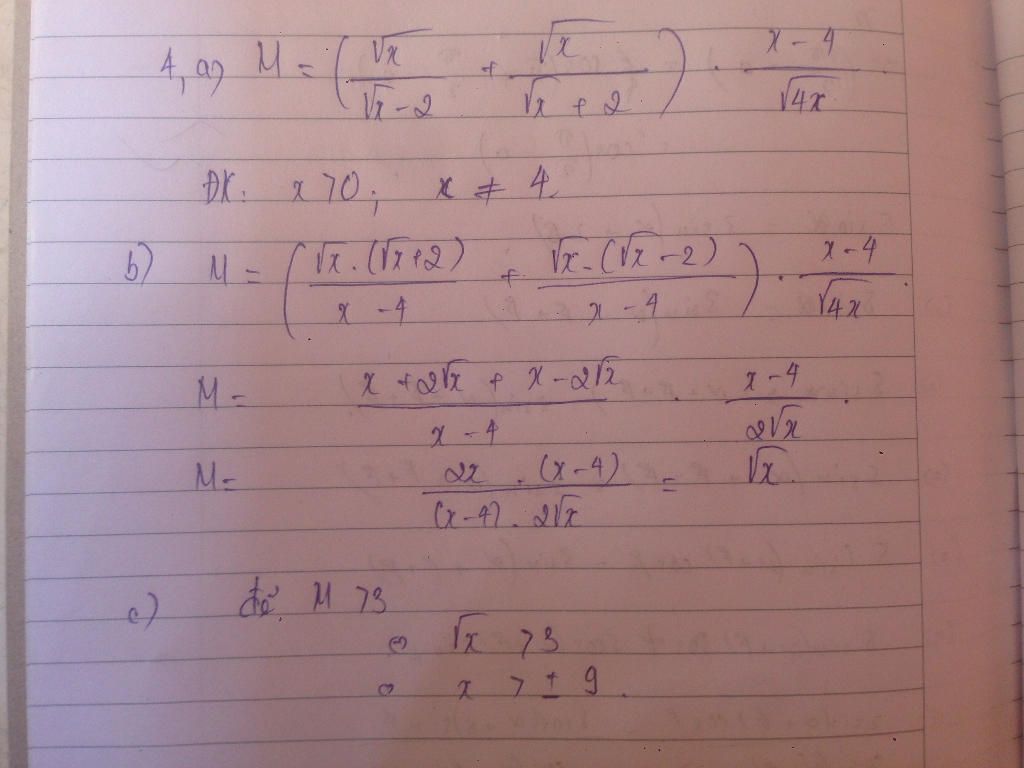 4, a) M = ( √x / (√x - 2) + √x / (√x + 2) ) . (x - 4) / √4x
ĐK: x > 0; x ≠ 4.
b) M = ( √x . (√x + 2) / (x - 4) + √x . (√x - 2) / (x - 4) ) . (x - 4) / √4x .
M = (x + 2√x + x - 2√x) / (x - 4) . (x - 4) / 2√x .
M = 2x . (x - 4) / (x - 4) . 2√x = √x .
c) để M > 3
⇔ √x > 3
⇔ x > ± 9 .